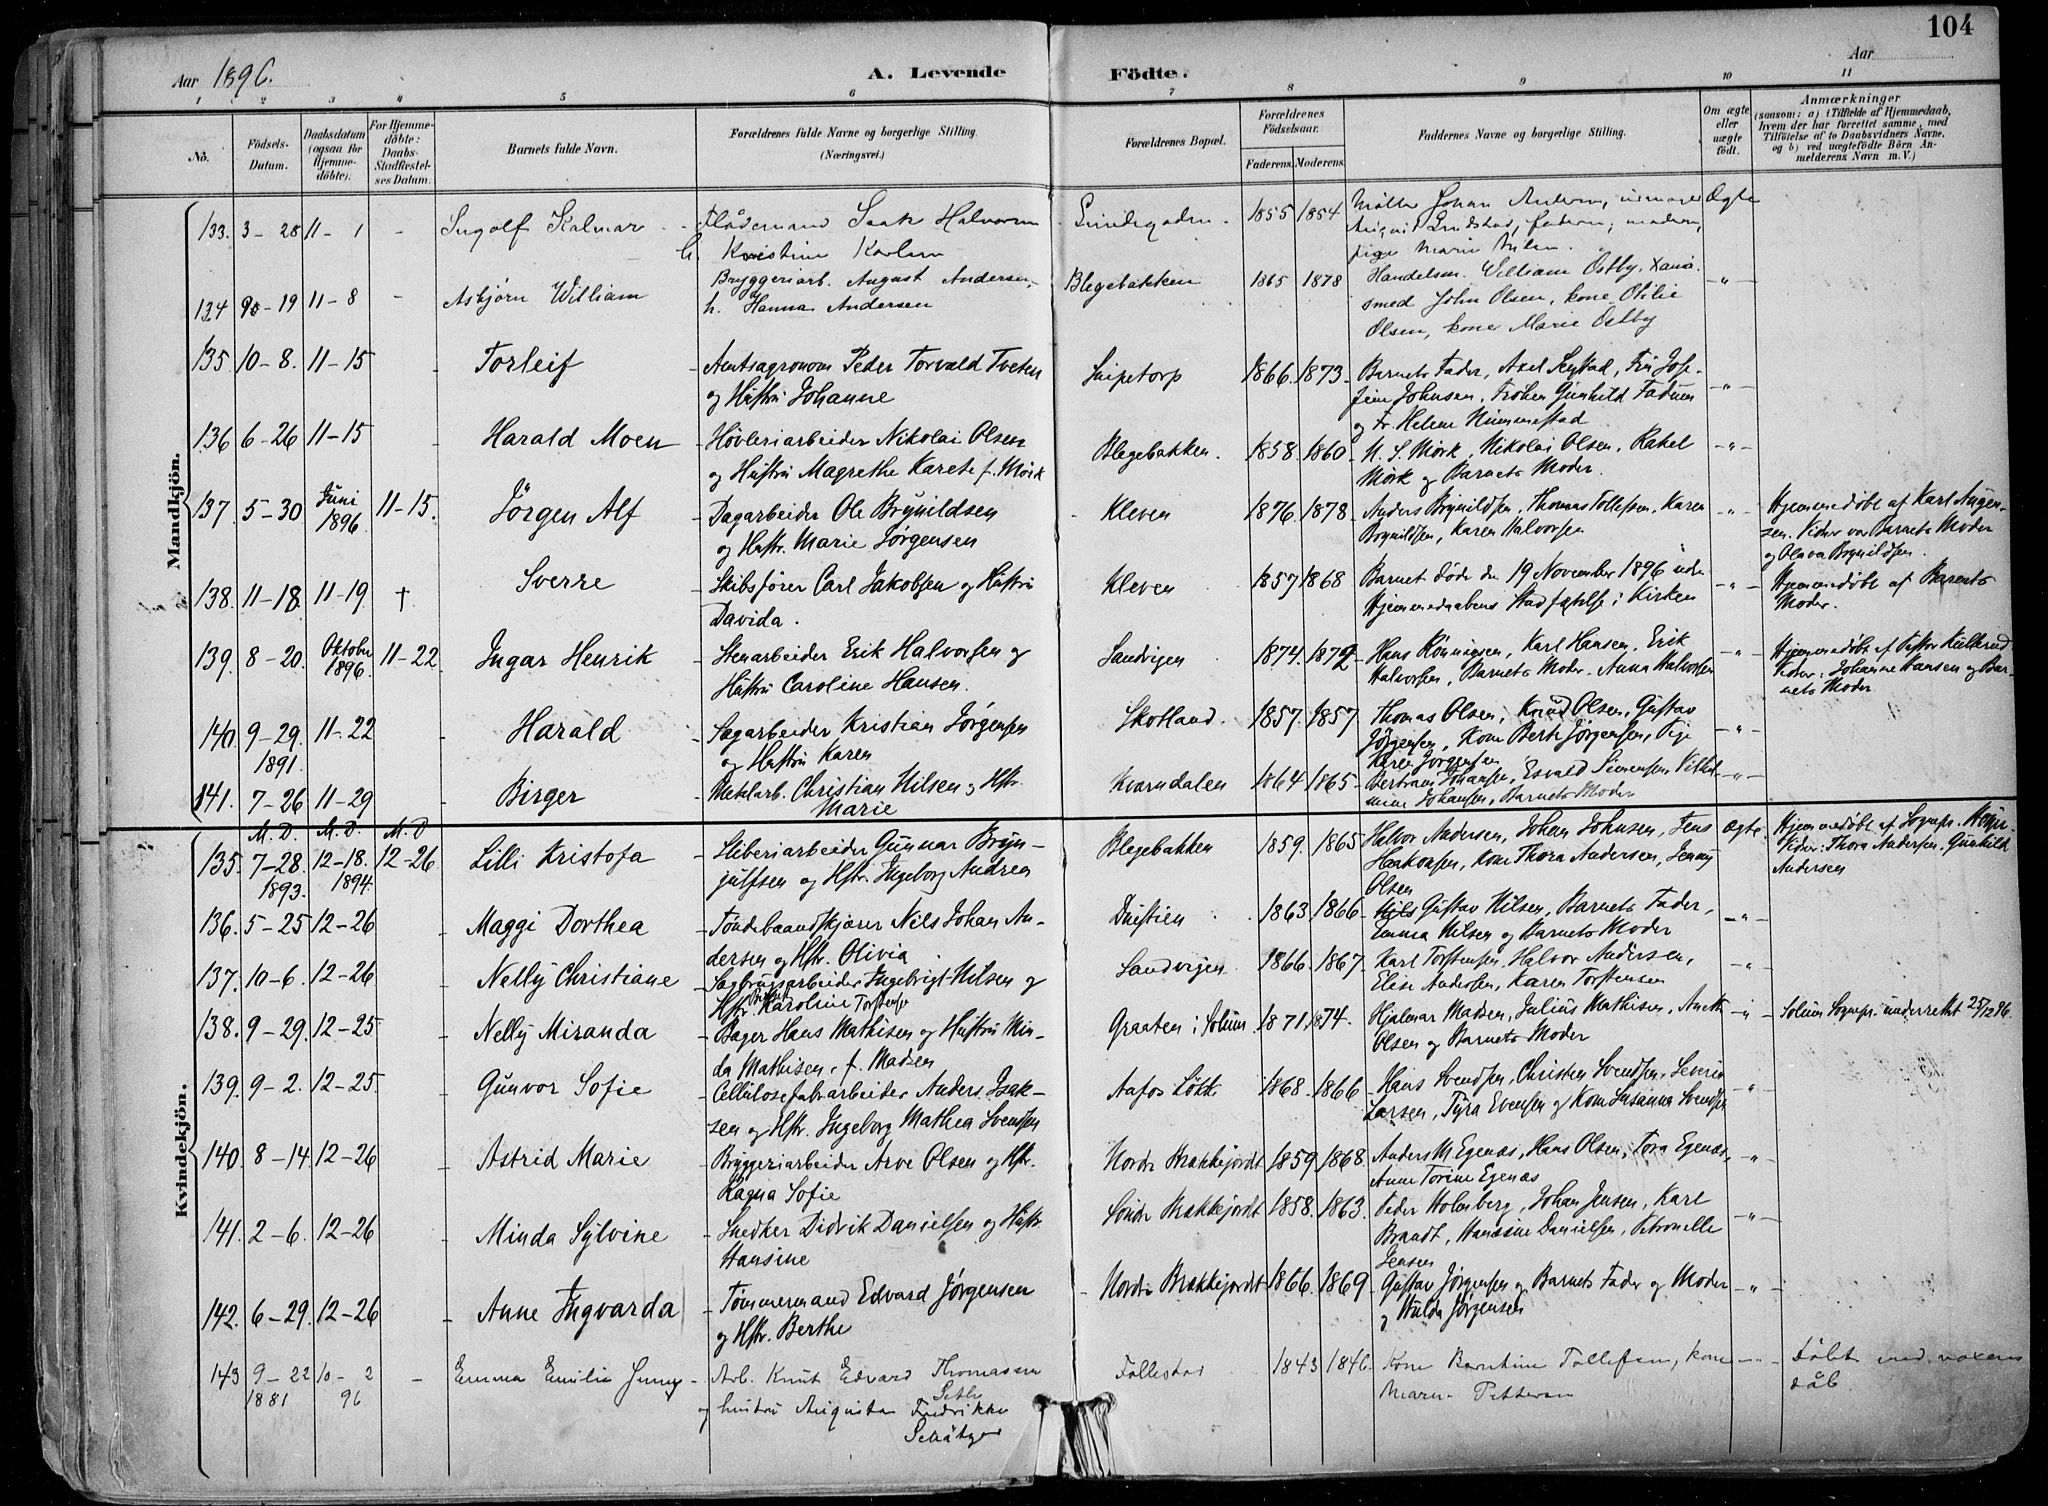 104
Aar 1896.
A. Levende Födte.
Aar
1 2 3 4 5 6 7 8 9 10 11
No.
Födsels-Datum.
Daabsdatum (ogsaa for Hjemme-döbte).
For Hjemme-döbte: Daabs-Stadfæstel-ses Datum.
Barnets fulde Navn.
Forældrenes fulde Navne og borgerlige Stilling.
(Næringsvei.)
Forældrenes Bopæl.
Forældrenes Födselsaar.
Faderens. Moderens.
Faddernes Navne og borgerlige Stilling.
Om ægte eller uægte födt.
Anmærkninger
(saasom: a) i Tilfælde af Hjemmedaab,
hvem der har forrettet samme, med
Tilföielse af to Daabsvidners Navne.
og b) ved uægtefödte Börn An-
melderens Navn m. V.)
Mandkjön.
133. 3-28 11-1 - Ingolf Kalmar - Flådemand Isak Halvorsen Lundegaden 1855 1854 Møller Johan Andersen, Ægte
h. Kristine Karlsen August Lundstad, fadern, modern,
pige Marie Nilsen.
134 90-19 11-8 - Asbjørn William Bryggeriarb. August Andersen, Blegebakken 1865 1878 Handelsm. William Østby, -"-
h. Hanna Andersen smed John Olsen, kone Otilie
Olsen, kone Marie Østby
135 10-8. 11-15 - Torleif - Amtsagronom Peder Torvald Tveten Snipetorp 1866. 1873 - Barnets Fader, Axel , Frk Jose-
og Hustru Johanne fine Johnsen, Frøken Gunhild Fadum -"-
og Fr. Helene Nummestad
136 6-26 11-15 Harald Moen - Høvleriarbeider Nikolai Olsen Blegebakken. 1858. 1860 - N. S. Mørk, Nikolai Olsen, Rakel -"-
og Hustru Magrethe Karete f. Mørk Mørk og Barnets Moder.
137. 5-30 Juni 1896. 11-15. Jørgen Alf - Dagarbeider Ole Brynildsen - Kleven 1876. 1878 - Anders Brynildsen, Thomas Tollefsen, Karen -"- Hjemmedøbt af Karl Jørgen-
og Hustr. Marie Jørgensen Brynildsen, Karen Halvorsen sen. Vidner var Barnets Moder
og Olava Brynildsen.
138. 11-18. 11-19 † Sverre - Skibsfører Carl Jakobsen og Hustru Kleven 1857. 1868 Barnet døde den 19 November 1896 uden -"- Hjemmedøbt af Barnets
Davida. Hjemmedaabens Stadfæstelse i Kirken Moder.
139. 8-20. Oktober 1896. 11-22 Ingar Henrik - Stenarbeider Erik Halvorsen og Sandvigen 1874. 1872 - Hans Rønningen, Karl Hansen, Erik -"- Hjemmedøbt af
Hustru Caroline Hansen. Halvorsen, Barnets Moder. Anna Halvorsen Vidner: Johanne Hansen og Bar-
nets Moder
140. 9-29. 11-22 - Harald - Sagarbeider Kristian Jørgensen Skotland. 1857. 1857. Thomas Olsen, Knud Olsen, Gustav -"-
1891. og Hustru Karen Jørgensen, Kone Berte Jørgensen, Pige
Karen Jørgensen
141. 7-26 11-29 - Birger - Metalarb. Christian Nilsen og Hstr. Kvarndalen 1864 1865 - Bertram Johansen, Esvald Simensen, Vilhel- -"-
Marie mine Johansen, Barnets Moder
Kvindekjön.
M. D. M. D. M. D
135. 7-28. 12-18. 12-26 Lilli Kristofa - Sliberiarbeider Gunnar Bryn- Blegebakken 1859. 1865 Halvor Andersen, Johan Johnsen, Jens Ægte. Hjemmedøbt af Sognepr.
1893. 1894. julfsen og Hstr. Ingeborg Andrea Haakonsen, Kone Thora Andersen, Jenny Vidner: Thora Andersen, Gunhild
Olsen Andersen
136. 5-25 12-26 - Maggi Dorthea - Tøndebaandskjærer Nils Johan An- Duestien 1863. 1866 - Nils Gustav Nilsen, Barnets Fader, -"-
dersen og Hstr. Olivia Emma Nilsen og Barnets Moder
137. 10-6. 12-26 - Nelly Christiane - Sagbrugsarbeider Ingebrigt Nilsen og Sandvigen. 1866. 1867. Karl Torstensen, Halvor Andersen, -"-
Hstr. Karoline Torstensen Elise Andersen, Karen Torstensen
138. 9-29. 12-25 - Nelly Miranda - Bager Hans Mathisen og Hustru Min- Graaten i Solum. 1871. 1874. Hjalmar Madsen, Julius Mathisen, Anette -"- Solum Sognepr. underrettet 25/12 96.
da Mathisen, f. Madsen Olsen og Barnets Moder
139. 9-2. 12-25. - Gunvor Sofie - Cellulosefabr.arbeider Anders Isak- Aafos Løkke 1868. 1866 - Hans Svendsen, Christen Svendsen, Severin -"-
sen og Hstr. Ingeborg Mathea Svendsen Larsen, Tyra Evensen og Kone Susanna Svendsen
140. 8-14. 12-26 - Astrid Marie - Bryggeriarbeider Arve Olsen og Hstr. Nordre Brekkejordt 1859. 1868. Anders M. Egenæs, Hans Olsen, Tora Egenæs, -"-
Ragna Sofie Anne Torine Egenæs
141. 2-6. 12-26 Minda Sylvine - Snedker Didrik Danielsen og Hustr. Søndre Brekkejordt 1858. 1863. Peder Holmberg, Johan Jensen, Karl -"-
Hansine Brandt, Hansine Danielsen, Petronelle
Jensen
142. 6-29. 12-26 - Anne Ingvarda - Tømmermand Edvard Jørgensen - Nordre Brekkejordt 1866. 1869 - Gustav Jørgensen og Barnets Fader og Moder -"-
og Hstr. Berthe og Hulda Jørgensen
143 9-22 10-2 - Emma Emilie Jenny - Arb. Knut Edvard Thomassen Follestad 1843 1846. Kone Berntine Tollefsen, kone -"- Døbt med voxen
1881 96 og hustru Augusta Fredrikke Maren Pettersen dåb